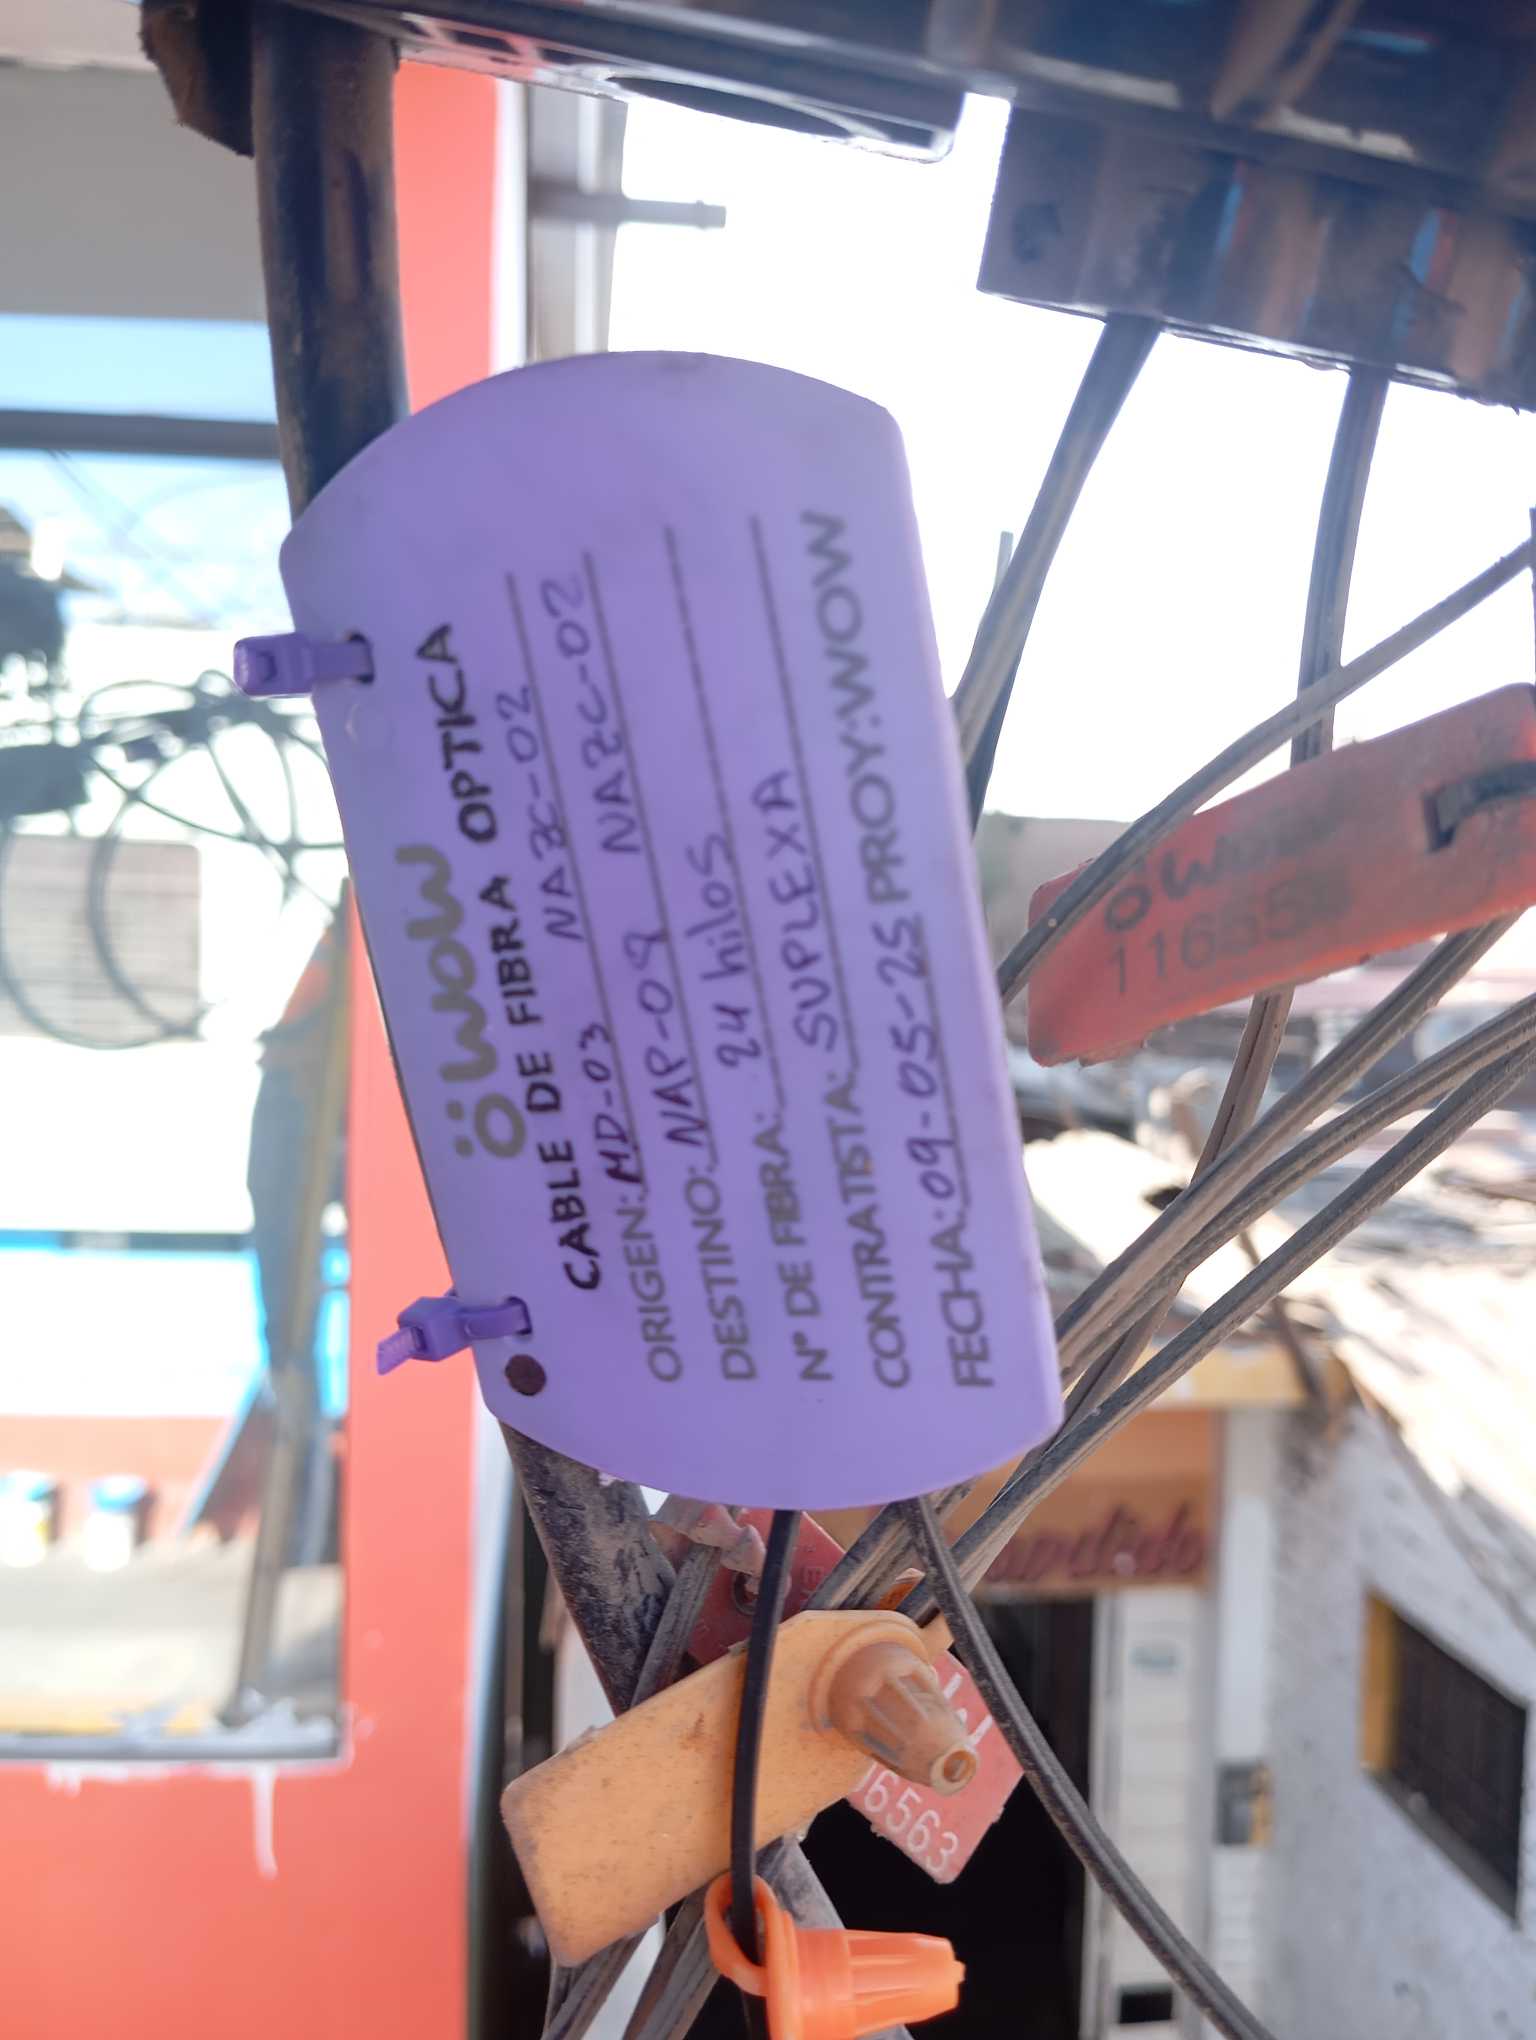 öwow
CABLE DE FIBRA OPTICA
ORIGEN: MD-03 NAZC-02
DESTINO: NAP-09 NAZC-02
N° DE FIBRA: 24 hilos
CONTRATISTA: SUPLEXA
FECHA: 09-05-25 PROY: WOW
06563